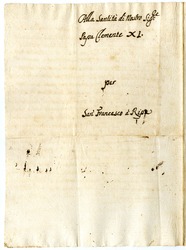 Alla Santità di Nostro Sig.re
Papa Clemente XI.
per
San Francesco à Ripa